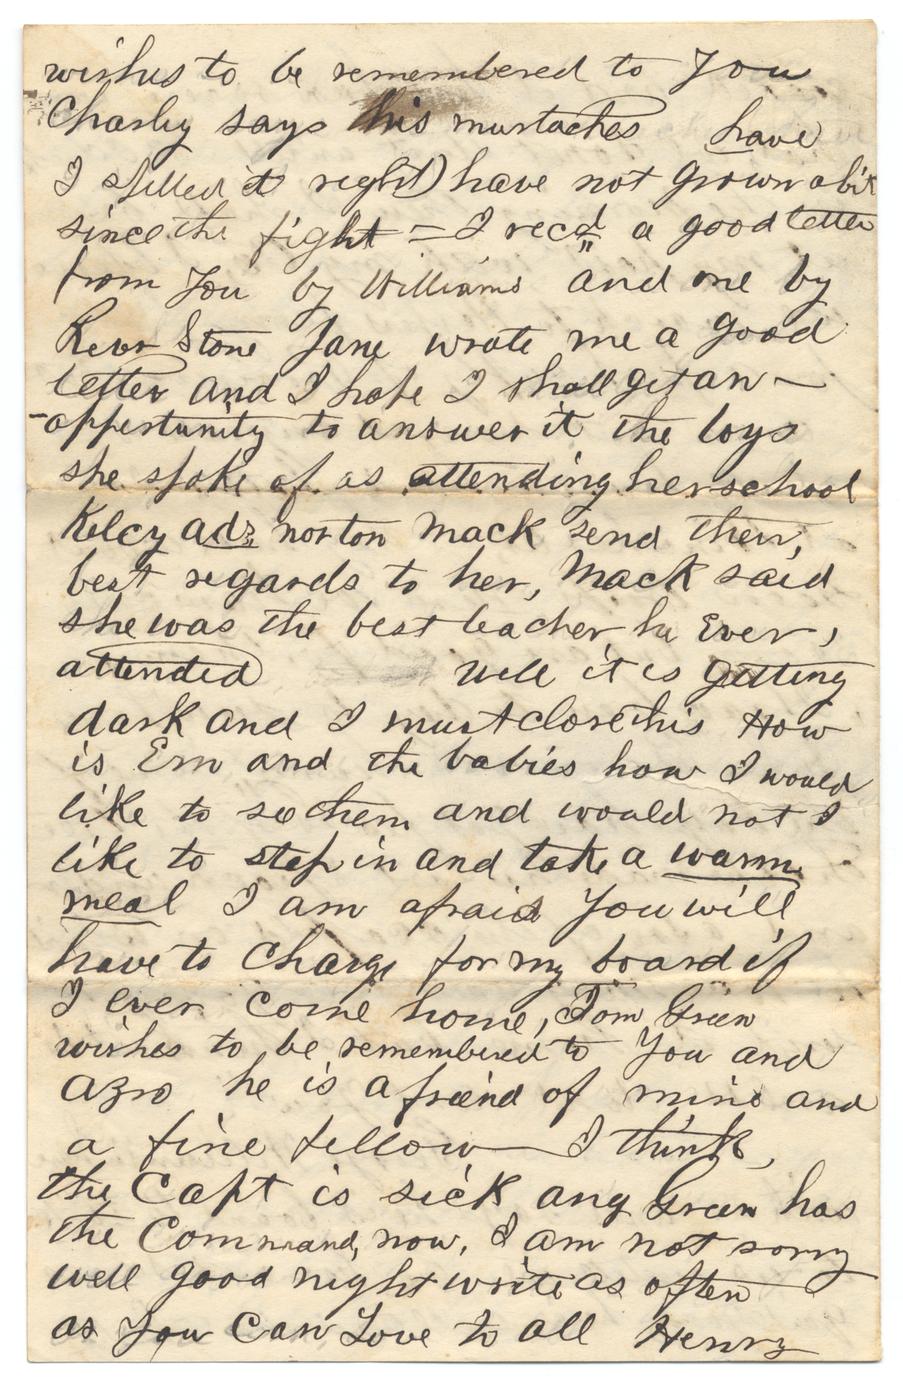 wishes to be remembered to You
Charley says this mustaches have
I spelled it right) have not grown a bit
since the fight = I recd a good letter
from You by Williams and one by
Revr Stone Jane wrote me a good
letter and I hope I shall get an —
-oppertunity to answer it the boys
she spoke of as attending her school
Kelcy norton Mack send their,
best regards to her, Mack said
she was the best teacher he Ever,
attended Well it is getting
dark and I must close this How
is Em and the babies how I would
like to see them and would not I
like to step in and take a warm
meal I am afraid You will
have to charge for my board if
I ever come home, Tom Green
wishes to be remembered to You and
Azro he is a friend of mine and
a fine fellow — I think,
the Capt is sick and Green has
the Command, now, I am not sorry
well good night write as often
as You Can Love to all Henry